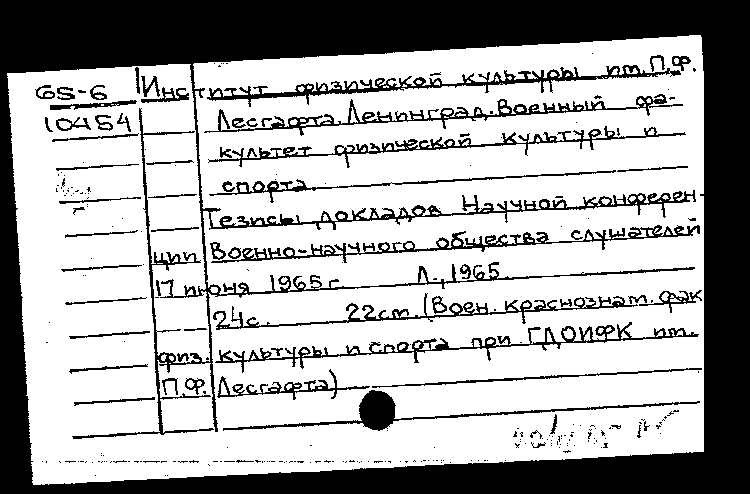 65-6 Институт физической культуры им. П.Ф.
10454 Лесгафта. Ленинград. Военный фа-
культет физической культуры и
спорта.
Тезисы докладов Научной конферен-
ции Военно-научного общества слушателей
17 июня 1965 г. Л., 1965.
24с. 22см. (Воен. краснознам. фак
физ. культуры и спорта при ГДОИФК им.
П.Ф. Лесгафта)